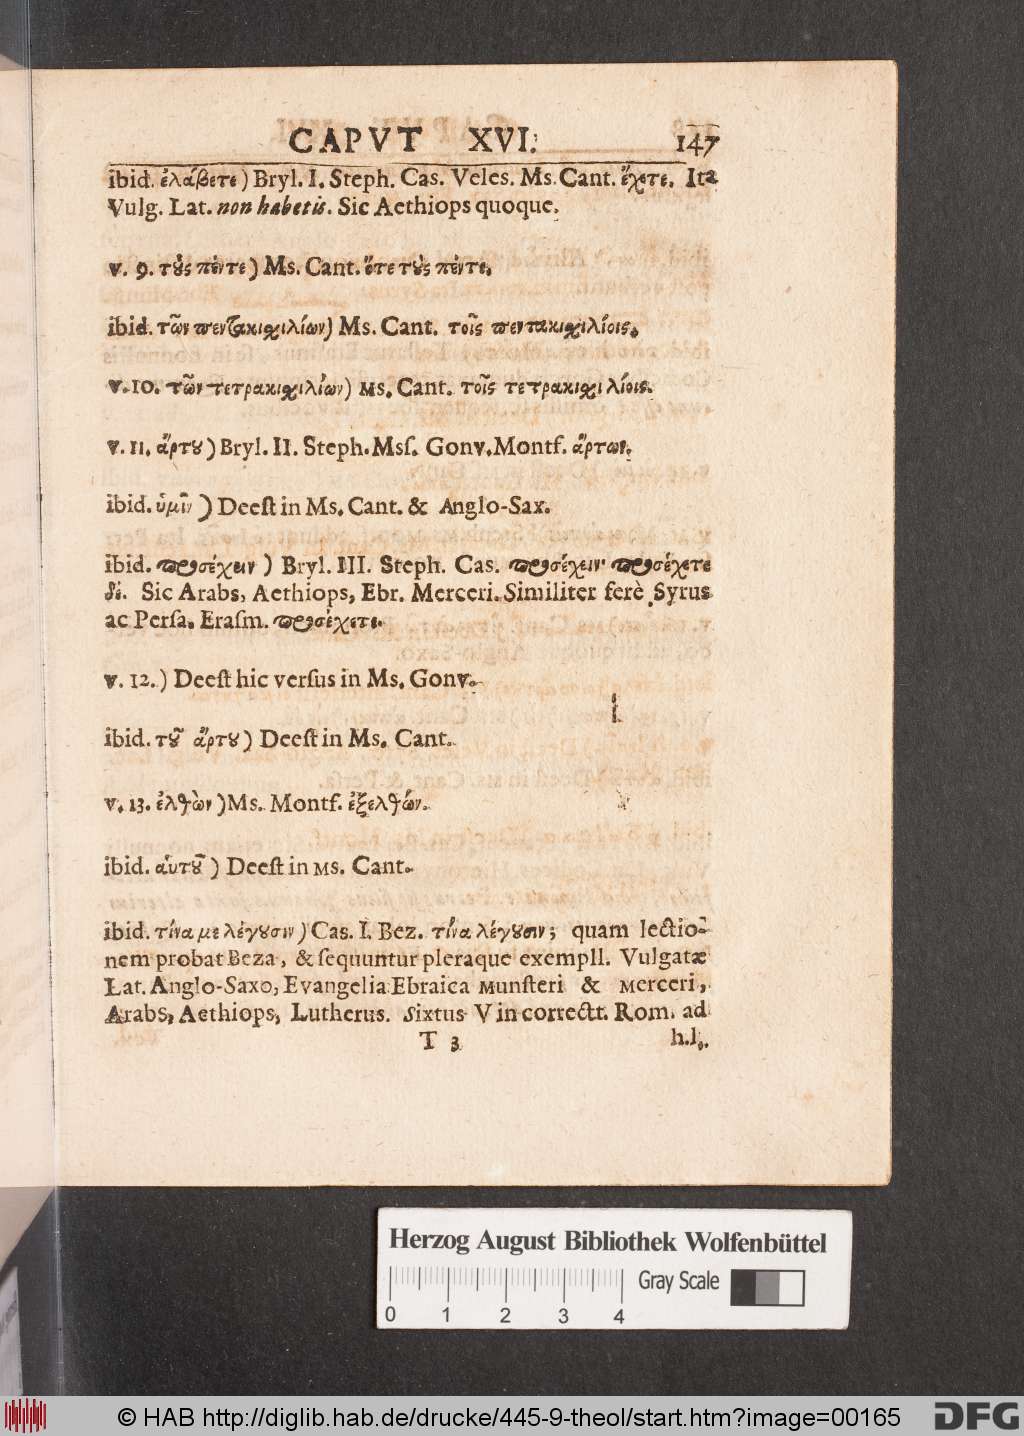 CAPVT XVI. 147
ibid. ἐλάβετε) Bryl. I. Steph. Cas. Veles. Ms. Cant. ἔχετε. Ita
Vulg. Lat. non habetis. Sic Aethiops quoque.
v. 9. τȣ̀ς πέντε) Ms. Cant. ὅτε τȣ̀ς πέντε.
ibid. τῶν πεντακιχιλίων) Ms. Cant. τοῖς πεντακιχιλίοις.
v. 10. τῶν τετρακιχιλίων) Ms. Cant. τοῖς τετρακιχιλίοις.
v. 11. ἄρτȣ) Bryl. II. Steph. Msſ. Gonv. Montf. ἄρτων.
ibid. ὑμῖν) Deeſt in Ms. Cant. & Anglo-Sax.
ibid. προσέχειν) Bryl. III. Steph. Cas. προσέχειν· προσέχετε
δέ. Sic Arabs, Aethiops, Ebr. Merceri. Similiter ferè Syrus
ac Perſa. Eraſm. προσέχετε.
v. 12.) Deeſt hic verſus in Ms. Gonv.
ibid. τȣ͂ ἄρτȣ) Deeſt in Ms. Cant.
v. 13. ἐλθὼν) Ms. Montf. ἐξελθών.
ibid. αὑτȣ͂) Deeſt in Ms. Cant.
ibid. τίνα με λέγȣσιν) Cas. I. Bez. τίνα λέγȣσιν; quam lectio-
nem probat Beza, & ſequuntur pleraque exempll. Vulgatæ
Lat. Anglo-Saxo, Evangelia Ebraica Munſteri & Merceri,
Arabs, Aethiops, Lutherus. Sixtus V in correctt. Rom. ad
T 3 h.l.
Herzog August Bibliothek Wolfenbüttel
Gray Scale
0 1 2 3 4
© HAB http://diglib.hab.de/drucke/445-9-theol/start.htm?image=00165 DFG